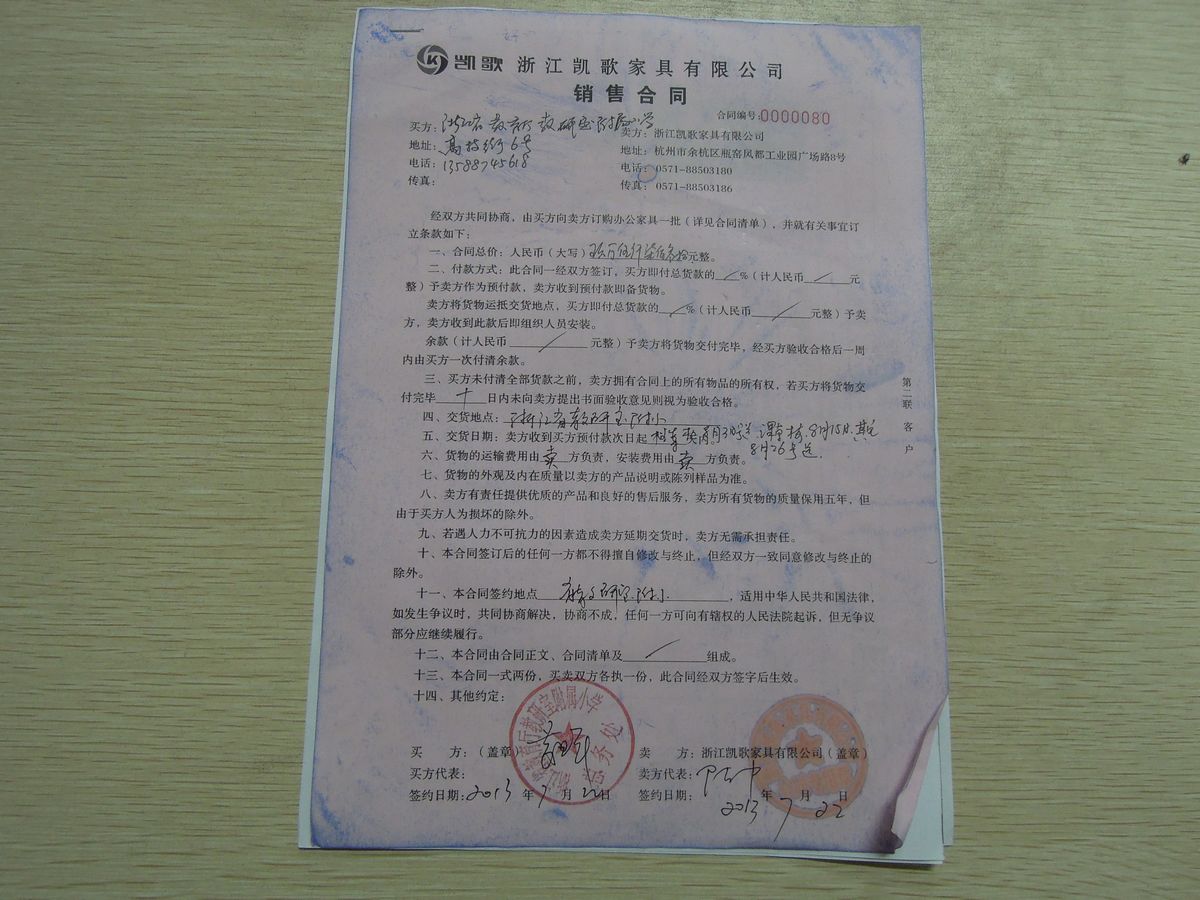 凯歌 浙江凯歌家具有限公司
销售合同
合同编号:0000080
买方: 浙江省教育厅教研室附属小学
卖方: 浙江凯歌家具有限公司
地址: 高技街6号
地址: 杭州市余杭区瓶窑凤都工业园广场路8号
电话: 13588745618
电话: 0571-88503180
传真:
传真: 0571-88503186
经双方共同协商，由买方向卖方订购办公家具一批（详见合同清单），并就有关事宜订
立条款如下：
一、合同总价：人民币（大写）玖万伍仟柒佰叁拾元整。
二、付款方式：此合同一经双方签订，买方即付总货款的 / %（计人民币 / 元
整）予卖方作为预付款，卖方收到预付款即备货物。
卖方将货物运抵交货地点，买方即付总货款的 / %（计人民币 / 元整）予卖
方，卖方收到此款后即组织人员安装。
余款（计人民币 / 元整）予卖方将货物交付完毕，经买方验收合格后一周
内由买方一次付清余款。
三、买方未付清全部货款之前，卖方拥有合同上的所有物品的所有权，若买方将货物交
付完毕 十 日内未向卖方提出书面验收意见则视为验收合格。
四、交货地点：浙江省教研室附小
五、交货日期：卖方收到买方预付款次日起 8月15日.其它
8月26号送.
六、货物的运输费用由 卖 方负责，安装费用由 卖 方负责。
七、货物的外观及内在质量以卖方的产品说明或陈列样品为准。
八、卖方有责任提供优质的产品和良好的售后服务，卖方所有货物的质量保用五年，但
由于买方人为损坏的除外。
九、若遇人力不可抗力的因素造成卖方延期交货时，卖方无需承担责任。
十、本合同签订后的任何一方都不得擅自修改与终止，但经双方一致同意修改与终止的
除外。
十一、本合同签约地点 教育研室附小 ，适用中华人民共和国法律，
如发生争议时，共同协商解决，协商不成，任何一方可向有辖权的人民法院起诉，但无争议
部分应继续履行。
十二、本合同由合同正文、合同清单及 / 组成。
十三、本合同一式两份，买卖双方各执一份，此合同经双方签字后生效。
十四、其他约定：
第二联 客户
教研室附属小学
总务处
买 方：（盖章）
卖 方：浙江凯歌家具有限公司（盖章）
买方代表：
卖方代表：
签约日期：2013 年 7 月 22 日
签约日期： 2013 年 7 月 22 日